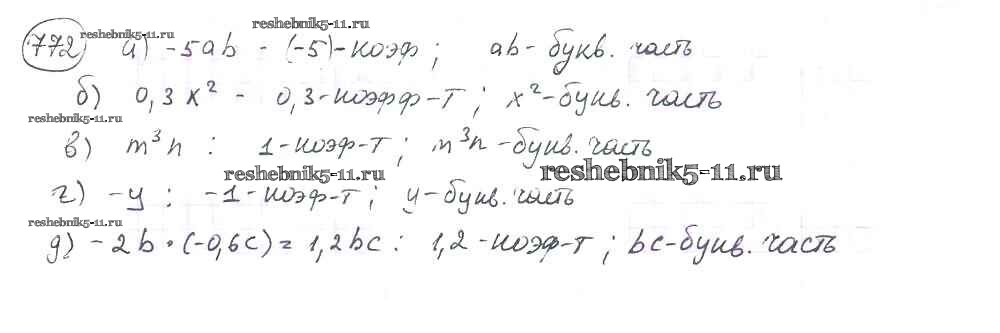 reshebnik5-11.ru reshebnik5-11.ru
772) а) -5ab - (-5)-коэф; ab- букв. часть
б) 0,3x² - 0,3-коэфф-т; x²-букв. часть
reshebnik5-11.ru
в) m³n : 1-коэф-т; m³n-букв. часть
reshebnik5-11.ru reshebnik5-11.ru
г) -y : -1-коэф-т; y-букв. часть
reshebnik5-11.ru
д) -2b·(-0,6c)=1,2bc : 1,2-коэф-т; bc-букв. часть